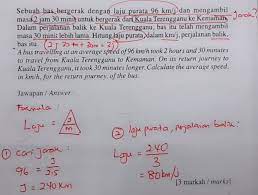 Sebuah bas bergerak dengan laju purata 96 km/j dan mengambil
masa 2 jam 30 minit untuk bergerak dari Kuala Terengganu ke Kemaman. Jarak?
Dalam perjalanan balik ke Kuala Terengganu, bas itu telah mengambil
masa 30 minit lebih lama. Hitung laju purata, dalam km/j, perjalanan balik
bas itu. (2j 30m + 30m = 3j)
A bus travelling at an average speed of 96 km/h took 2 hours and 30 minutes
to travel from Kuala Terengganu to Kemaman. On its return journey to
Kuala Terengganu, it took 30 minutes longer. Calculate the average speed
in km/h, for the return journey, of the bus.
Jawapan / Answer:
Formula:
Laju = J/M
① cari jarak:
96 = J/2.5
J = 240 km
② laju purata, perjalanan balik:
Laju = 240/3
= 80 km/j
[3 markah / marks]